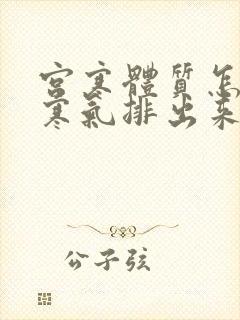 宮寒體質怎
寒氣排出來
公子弦